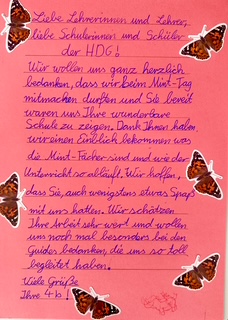 Liebe Lehrerinnen und Lehrer,
liebe Schülerinnen und Schüler
der HDG!
Wir wollen uns ganz herzlich
bedanken, dass wir beim Mint-Tag
mitmachen durften und Sie bereit
waren uns Ihre wunderbare
Schule zu zeigen. Dank Ihnen haben
wir einen Einblick bekommen was
die Mint-Fächer sind und wie der
Unterricht so abläuft. Wir hoffen,
dass Sie, auch wenigstens etwas Spaß
mit uns hatten. Wir schätzen
Ihr Arbeit sehr wert und wollen
uns noch mal besonders bei den
Guides bedanken, die uns so toll
begleitet haben.
Viele Grüße
Ihre 4b!